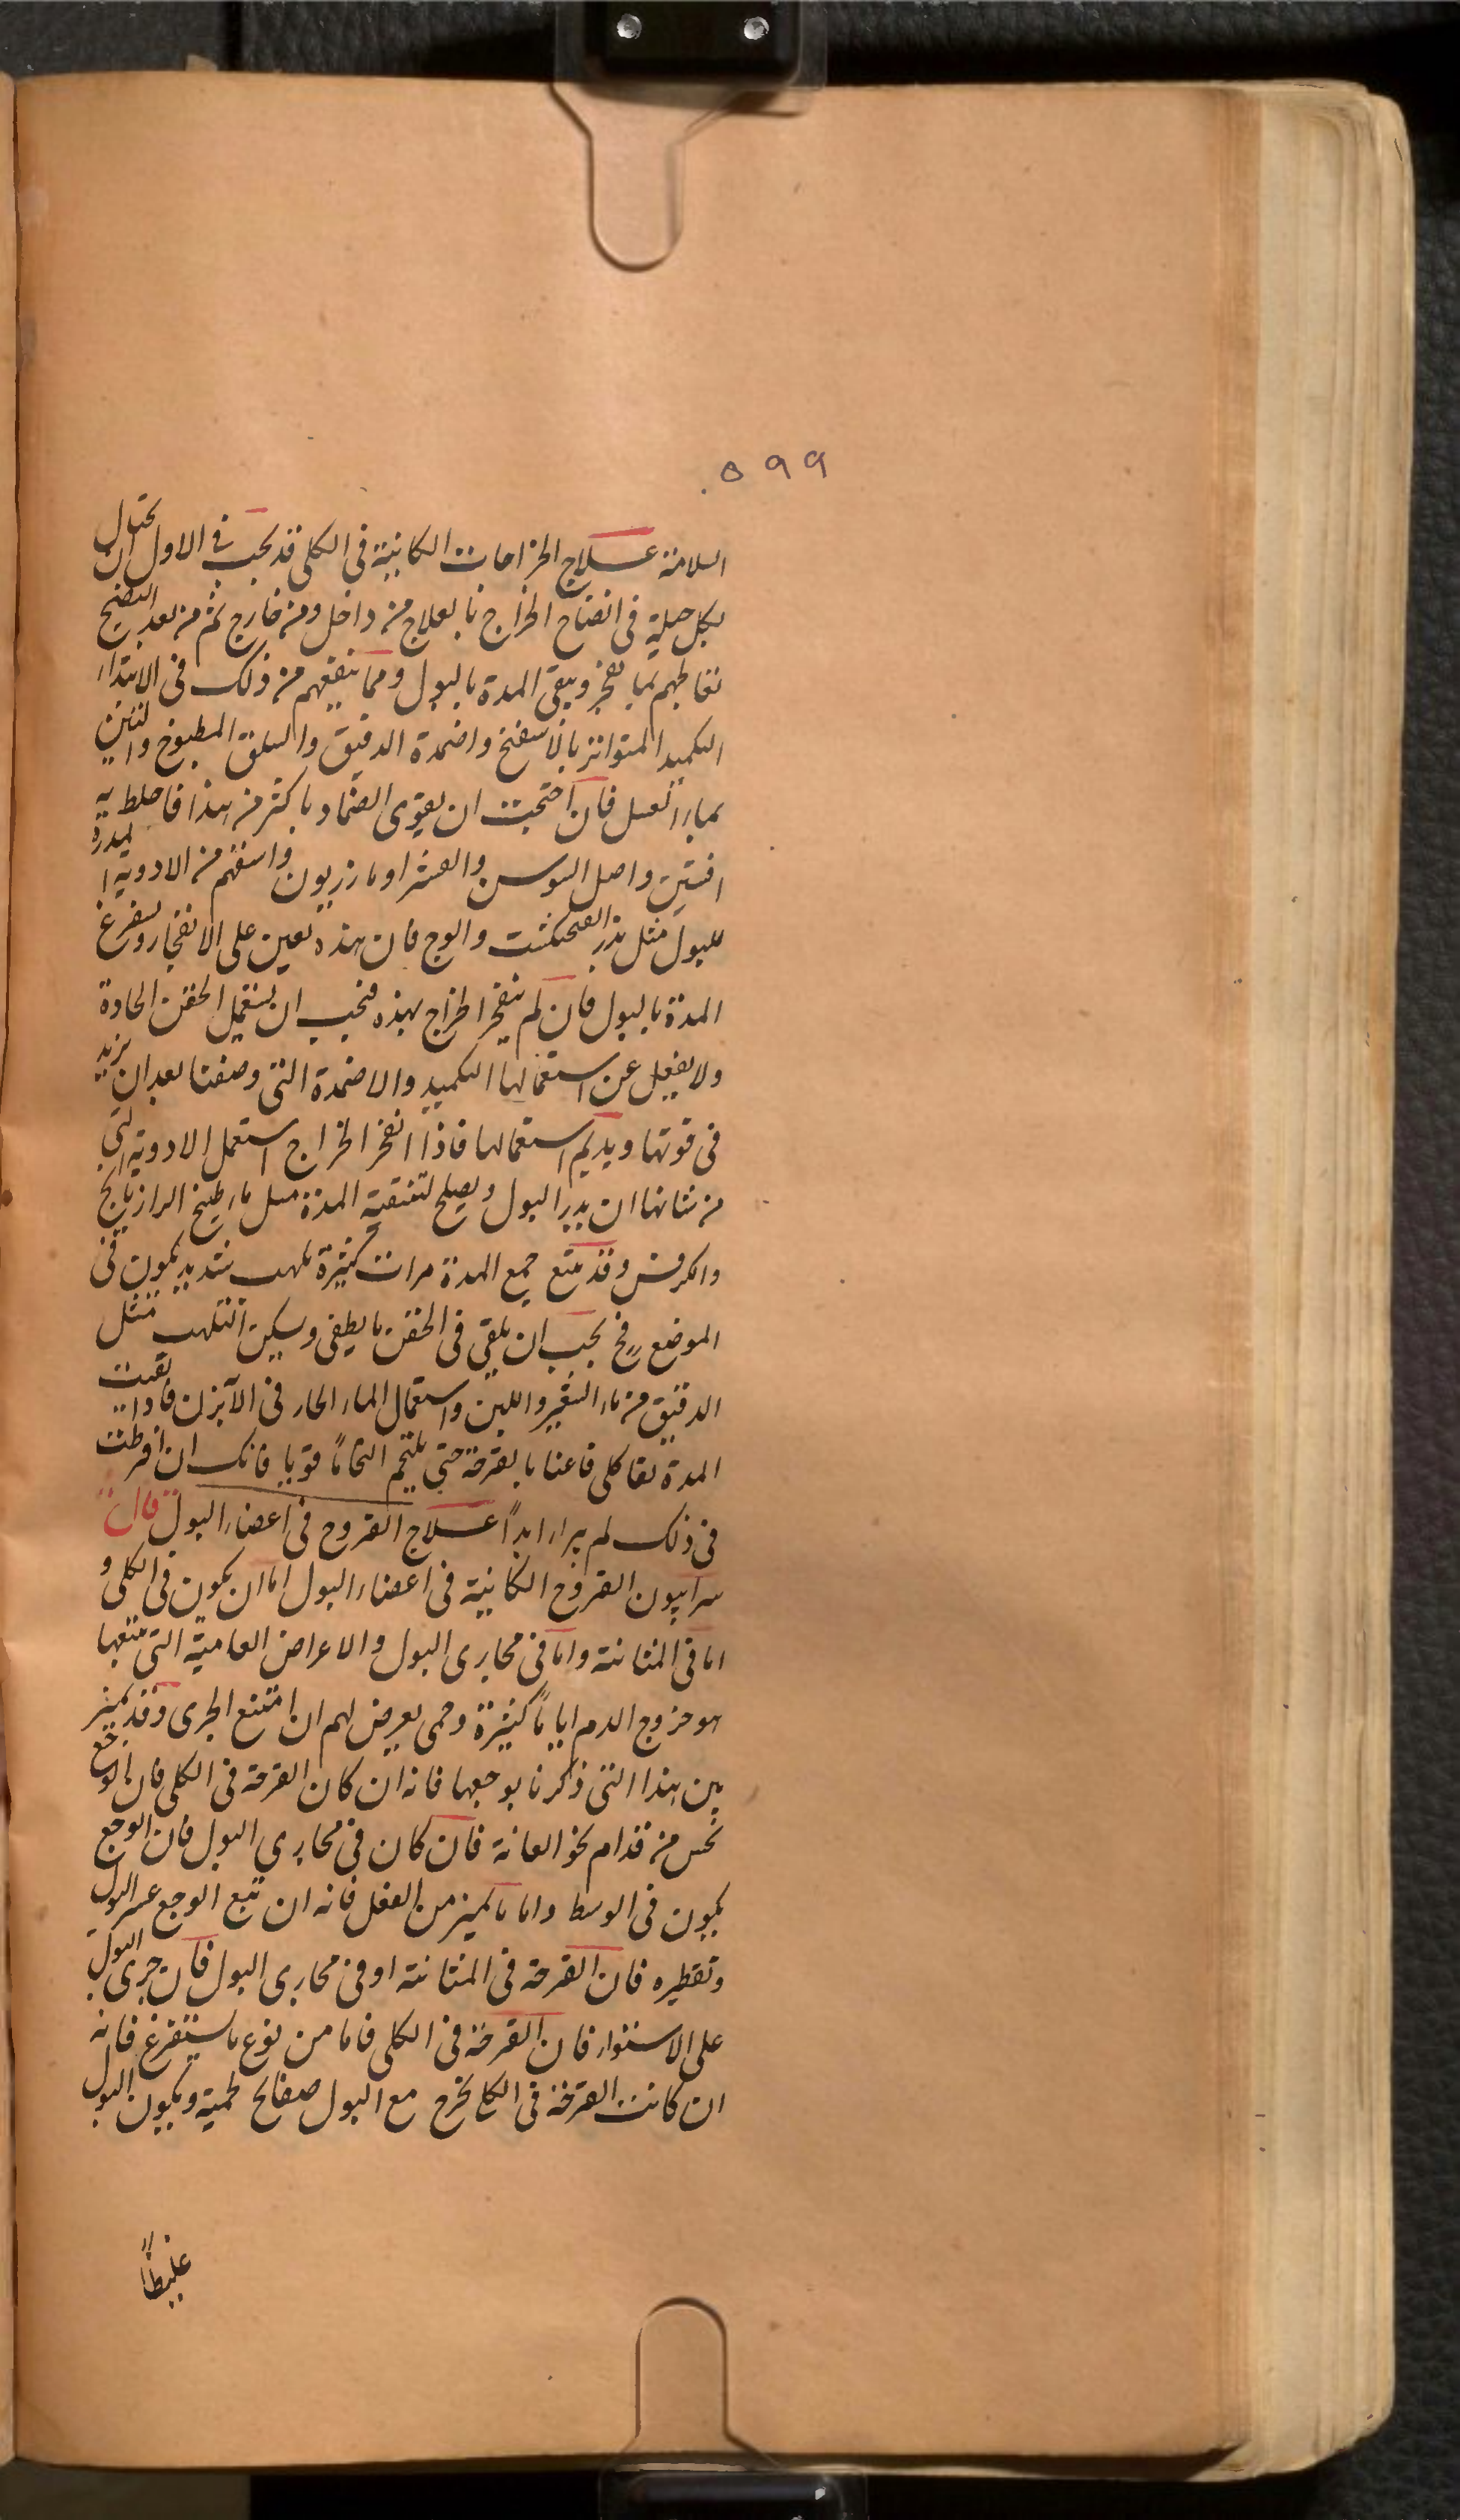 ٥٩٩
السلامة علاج الخراجات الكائنية فى الكلى قد يجب فى الاول ان يحتال
بكل حيلة فى انضاح الخراج بالعلاج من داخل ومن خارج ثم من بعد النضج
نعالجهم بما يفجر وينقى المدة بالبول ومما ينفعهم من ذلك فى الابتداء
التكميد المتواتر بالاسفنج واضمدة الدقيق والسلق المطبوخ والتين
بماء العسل فان احتجت ان يقوى الضماد باكثر من هذا فاخلط به
افسنتين واصل السوسن والعشر او مازريون واسقهم من الادوية المدرة
للبول مثل بذر الفنجكشت والوج فان هذه تعين على الانفجار ويستفرغ
المدة بالبول فان لم ينفجر الخراج بهذه فيجب ان يستعمل الحقن الحادة
ولا يغفل عن استعمالها التكميد والاضمدة التى وصفنا بعد ان يزيد
فى قوتها ويديم استعمالها فاذا انفجر الخراج استعمل الادوية التى
من شانها ان يدر البول ويصلح لتنقية المدة مثل ماء طبيخ الرازيانج
والكرفس وقد يتبع جمع المدة مرات كثيرة تلهب شديد يكون فى
الموضع فح يجب ان يلقى فى الحقن ما يطفى ويسكن التلهب مثل
الدقيق من ماء الشعير واللبن واستعمال الماء الحار فى الآبزن فاذا نقيت
المدة نقا كلى فاعنا بالقرحة حتى يلتحم التحاماً قويا فانك ان افرطت
فى ذلك لم يبراء ابداً علاج القروح فى اعضاء البول قال
سرابيون القروح الكائنية فى اعضاء البول اما ان يكون فى الكلى و
اما فى المثانة واما فى مجارى البول والاعراض العامية التى تتبعها
هو خروج الدم اياماً كثيرة وحمى يعرض لهم ان امتنع الجرى وقد يميز
بين هذا التى ذكرنا بوجعها فانه ان كان القرحة فى الكلى فان الوجع
يحس من قدام نحو العانة فان كان فى مجاري البول فان الوجع
يكون فى الوسط واما ما يميز من الفعل فانه ان تبع الوجع عسر البول
وتقطيره فان القرحة فى المثانة او فى مجارى البول فان جرى البول
على الاستواء فان القرحة فى الكلى فاما من نوع ما يستفرغ فانه
ان كانت القرحة فى الكلى خرج مع البول صفائح لحمية ويكون البول
غليظاً